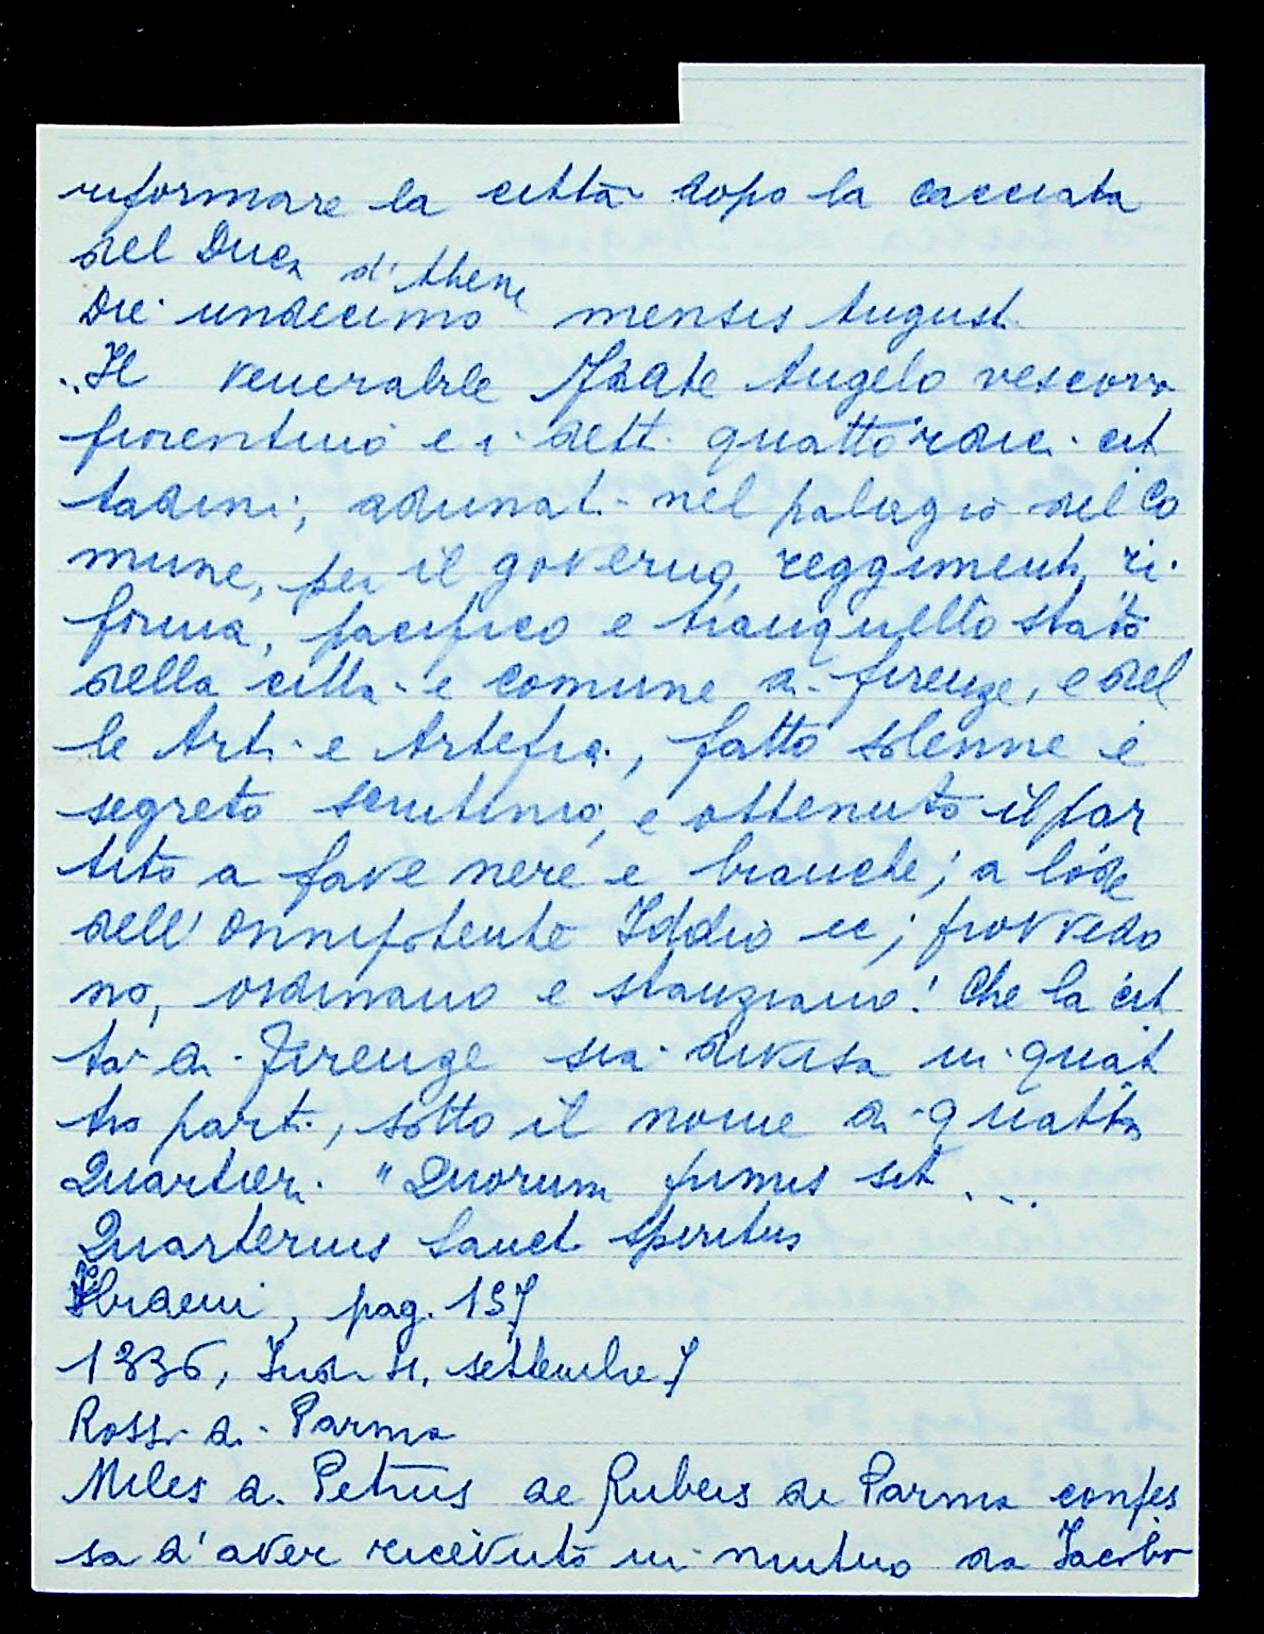 riformare la città dopo la cacciata
del Duca d'Athene
Die undecimo mensis August.
"Il venerabile Frate Angelo vescovo
fiorentino e i detti quattordici cit
tadini, adunati nel palagio del Co
mune, per il governo, reggimento, ri
forma, pacifico e tranquillo stato
della città e comune di Firenze, e del
le Arti e Artefici, fatto solenne e
segreto scrutinio, e ottenuto il par
tito a fave nere e bianche; a lode
dell'Onnipotente Iddio ec; provvedo
no, ordinano e stanziano: Che la cit
tà di Firenze sia divisa in quat
tro parti, sotto il nome di quattro
Quartieri. "Quorum primus sit ...
Quarterius Sancti Spiritus
Ibidem, pag. 197
1336, Ind. IV, settembre 7
Rossi di Parma
Miles d. Petrus de Rubeis de Parma confes
sa d'aver ricevuto in mutuo da Iacobo